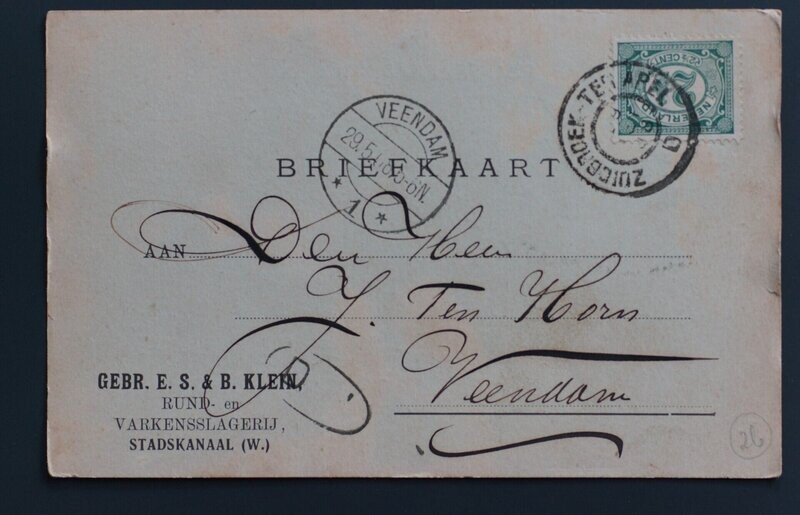 NEDERLAND
2½ CENT
ZUIDBROEK-TER APEL D
VEENDAM
29.5
1
BRIEFKAART
AAN Den Heer
J. Ten Horn
Veendam
GEBR. E. S. & B. KLEIN,
RUND- en
VARKENSSLAGERIJ,
STADSKANAAL (W.)
26